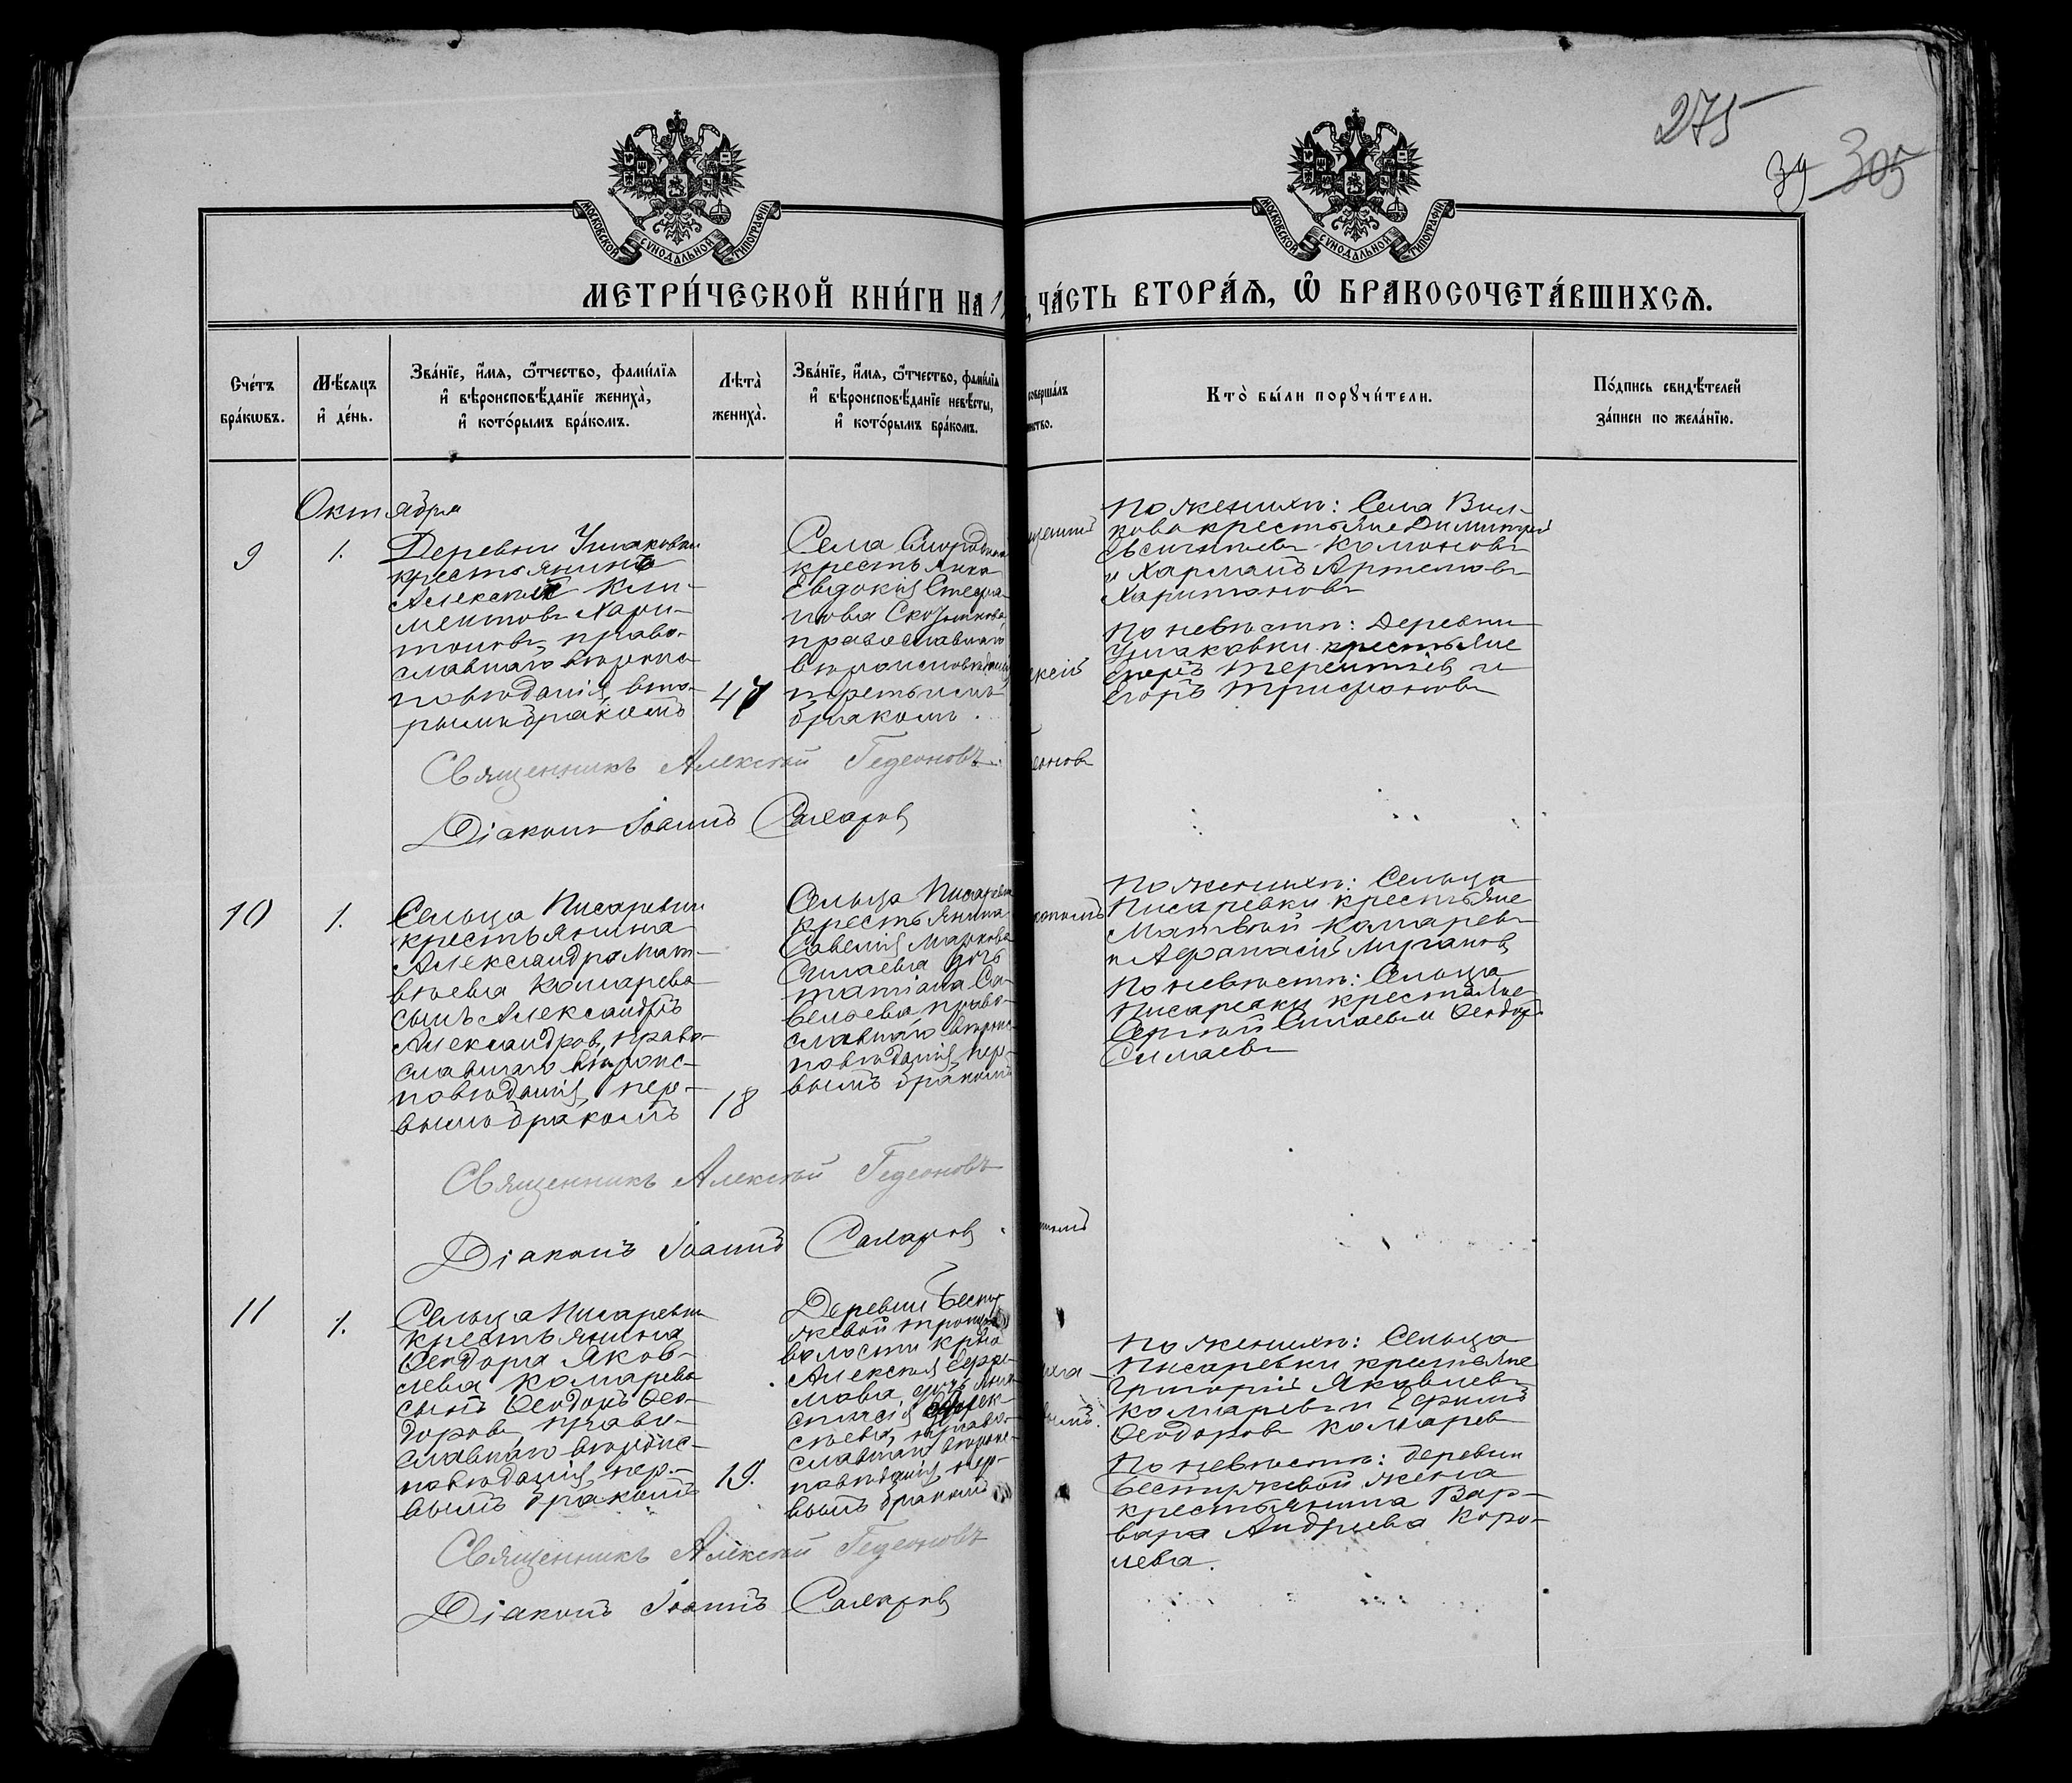 275
39 305
МОСКОВСКОЙ СѴНОДАЛЬНОЙ ТИПОГРАФІИ
МОСКОВСКОЙ СѴНОДАЛЬНОЙ ТИПОГРАФІИ
МЕТРИ́ЧЕСКОЙ КНИ́ГИ НА 1
ЧА́СТЬ ВТОРА́Ѧ, Ѽ БРАКОСОЧЕТА́ВШИХСѦ.
Сче́тъ бра́кѡвъ.
Мѣ́сяцъ и҆ де́нь.
Зва́нїе, и҆́мя, ѻ҆́тчество, фами́лїя
и҆ вѣроисповѣ́данїе жениха̀,
и҆ кото́рымъ бра́комъ.
Лѣта̀ жениха̀.
Зва́нїе, и҆́мя, ѻ҆́тчество, фами́лїя
и҆ вѣроисповѣ́данїе невѣ́сты,
и҆ кото́рымъ бра́комъ.
соверша́лъ
Кто̀ бы́ли порꙋчи́тели.
По́дпись свидѣ́телей
за́писи по жела́нїю.
Октября
9
1.
Деревни Ушаковки
крестьянинъ
Алексей Кли-
ментовъ Хари-
тоновъ, право-
славнаго вѣроис-
повѣданія, вто-
рымъ бракомъ
47
Села
крестьянка
Евдокія Стефа-
нова
православнаго
вѣроисповѣданія
третьимъ
бракомъ.
ексій
еоновъ
По женихѣ: Села
кова крестьяне Димитрій
Комоновъ
и Артемовъ
Харитоновъ
По невѣстѣ: Деревни
Ушаковки крестьяне
Терентіевъ и
Егоръ Трифоновъ
Священникъ Алексѣй Гедеоновъ.
Діаконъ Іоаннъ Сахаров
10
1.
Сельца Писаревки
крестьянина
Александра Мат-
вѣева Комарева
сынъ Александръ
Александров, право-
славнаго вѣроис-
повѣданія, пер-
вымъ бракомъ
18
Сельца Писаревки
крестьянина
Савелія Маркова
Силаева дочь
Татіана Са-
вельева право-
славнаго вѣроис-
повѣданія, пер-
вымъ бракомъ
По женихѣ: Сельца
Писаревки крестьяне
Матвѣй Комаревъ
и Афанасій
По невѣстѣ: Сельца
Писаревки крестьяне
Сергѣй Силаевъ и Ѳеодор
Силаевъ
Священникъ Алексѣй Гедеоновъ
Діаконъ Іоаннъ Сахаров
11
1.
Сельца Писаревки
крестьянина
Ѳеодора Яков-
лева Комарева
сынъ Ѳеодоръ Ѳео-
доровъ, право-
славнаго вѣроис-
повѣданія, пер-
вымъ бракомъ
19.
Деревни
волости
Алексѣя Ефре-
мова дочь
Алек-
сѣева, право-
славнаго вѣроис-
повѣданія, пер-
вымъ бракомъ
По женихѣ: Сельца
Писаревки крестьяне
Григорій Яковлевъ
Комаревъ и Ефимъ
Ѳеодоровъ Комарев
По невѣстѣ: деревни
жена
крестьянина Вар-
вара Андреева Коро-
лева.
Священникъ Алексѣй Гедеоновъ
Діаконъ Іоаннъ Сахаров